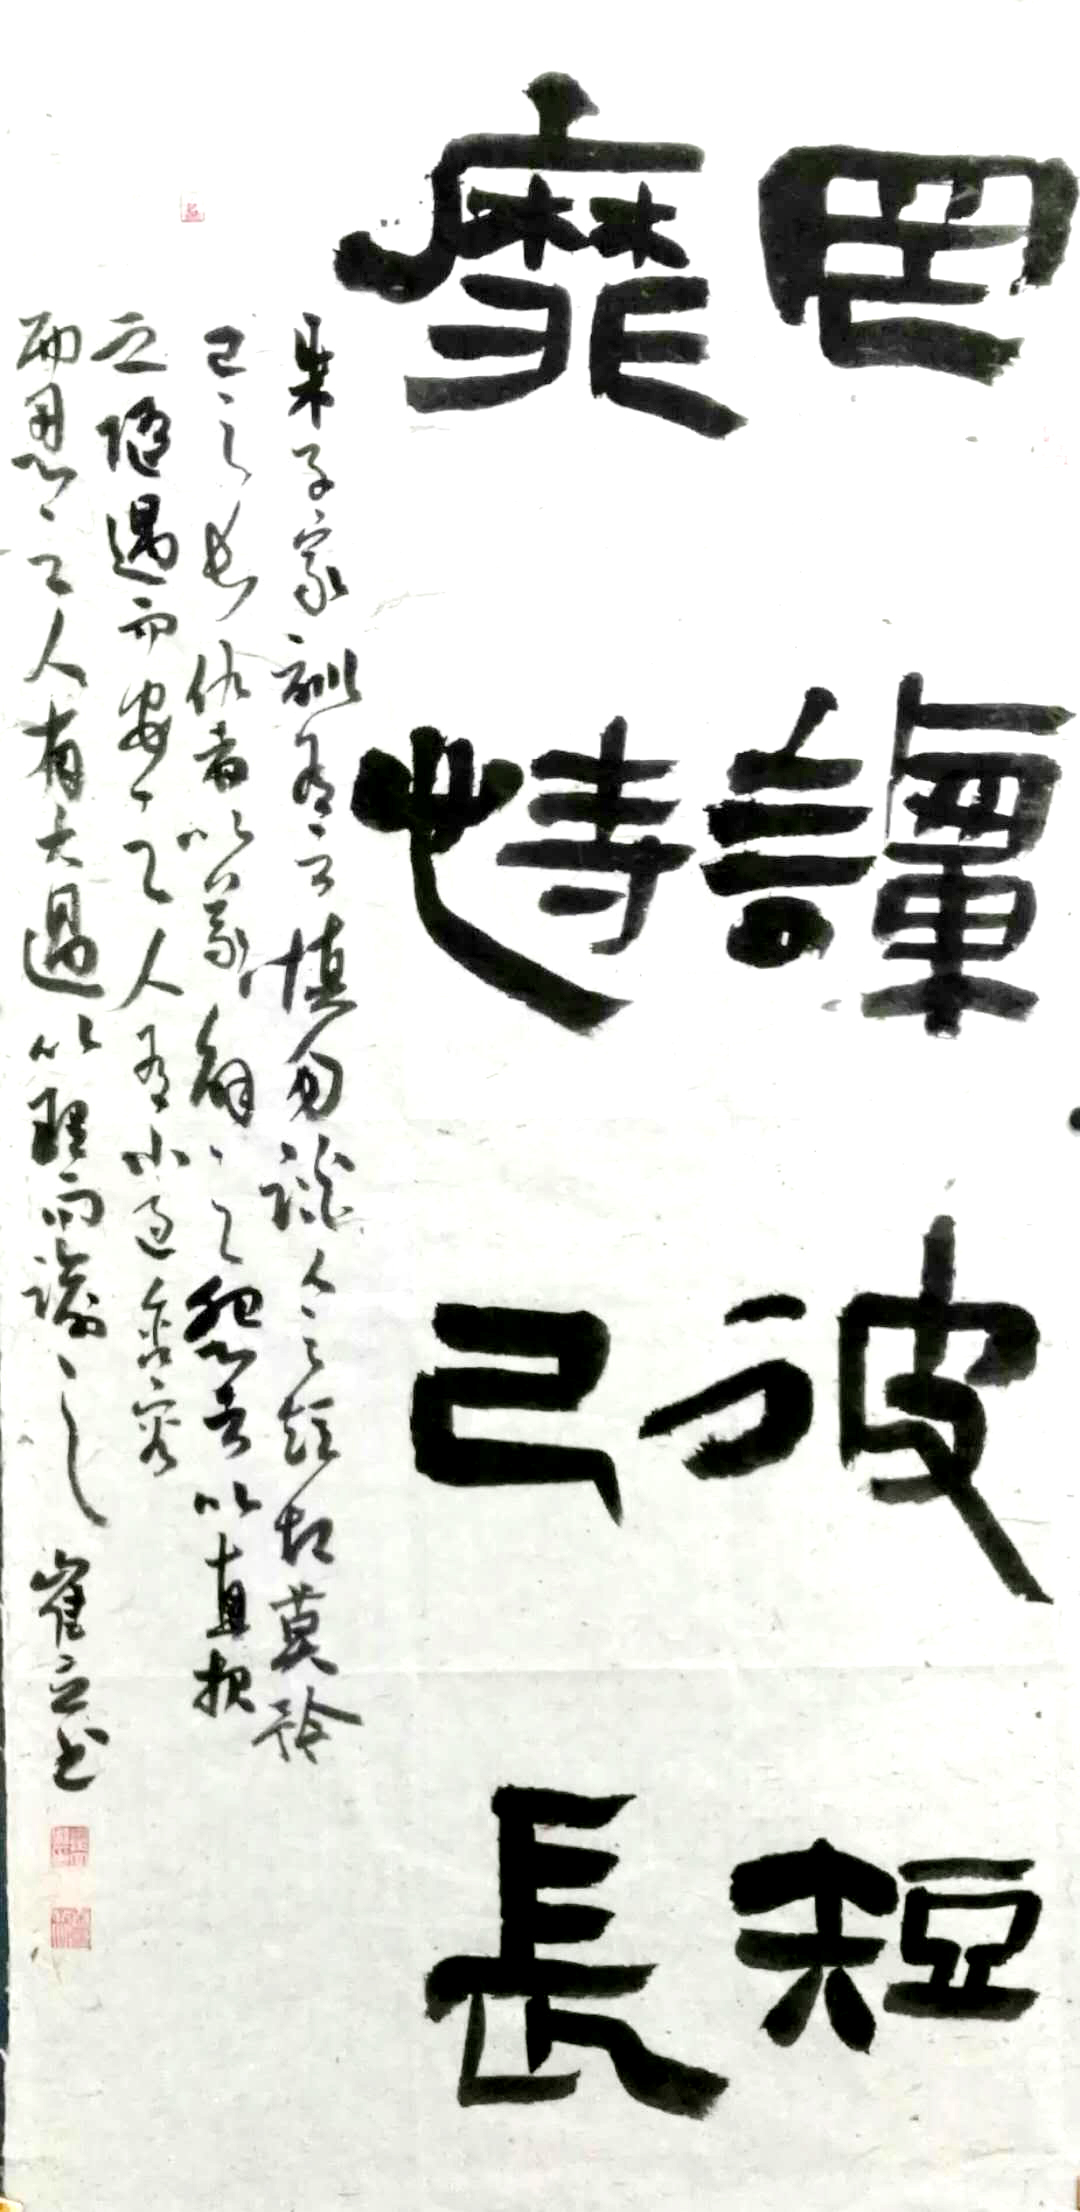 罔譚彼短
靡恃己長
朱子家訓有云慎勿談人之短切莫矜
己之長仇者以義解之怨者以直报
之随遇而安之人有小過含容
而忍之人有大過以理而諭之 崔立书